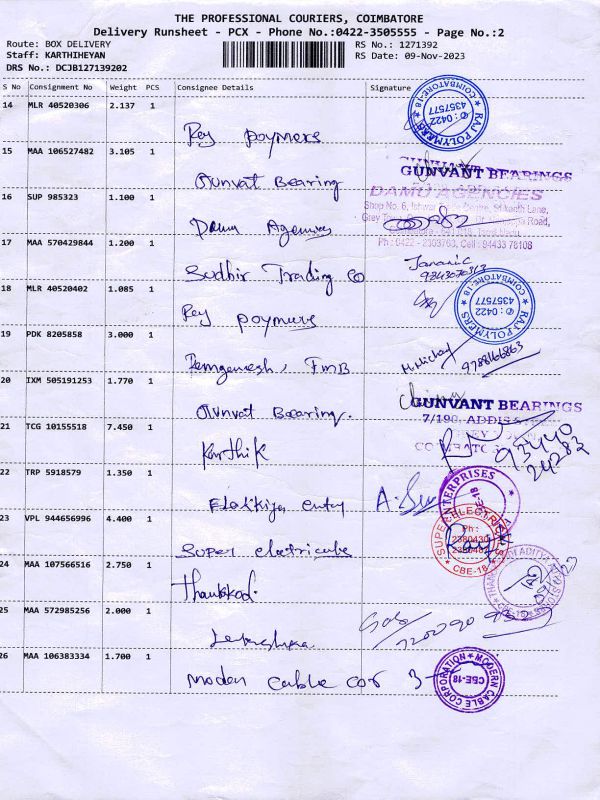 THE PROFESSIONAL COURIERS, COIMBATORE
Delivery Runsheet - PCX - Phone No.:0422-3505555 - Page No.:2
Route: BOX DELIVERY RS No.: 1271392
Staff: KARTHIHEYAN RS Date: 09-Nov-2023
DRS No.: DCJB127139202
S No Consignment No Weight PCS Consignee Details Signature
14 MLR 40520306 2.137 1
Raj poymers
RAJ POLYMERS
✆: 0422
4357577
COIMBATORE-18
15 MAA 106527482 3.105 1
Gunvat Bearing
GUNVANT BEARINGS
16 SUP 985323 1.100 1
Damu Agencies
DAMU AGENCIES
Shop No. 6, Ishwar
Srikanth Lane,
Road,
Ph : 0422 - 2303763, Cell : 94433 76108
17 MAA 570429844 1.200 1
Sudhir Trading Co
18 MLR 40520402 1.085 1
Raj poymers
RAJ POLYMERS
✆: 0422
4357577
COIMBATORE-18
19 PDK 8205858 3.000 1
Ramganesh, FMB
9788166863
20 IXM 505191253 1.770 1
Gunvat Bearing.
GUNVANT BEARINGS
7/190, ADDIS
21 TCG 10155518 7.450 1
Karthik
93440
24283
22 TRP 5918579 1.350 1
ENTERPRISES
CBE-18
23 VPL 944656996 4.400 1
Super eletricals
SUPER ELECTRICALS
Ph :
CBE-18
24 MAA 107566516 2.750 1
25 MAA 572985256 2.000 1
26 MAA 106383334 1.700 1
Moden cable cor
MODERN CABLE CORPORATION
CBE-18